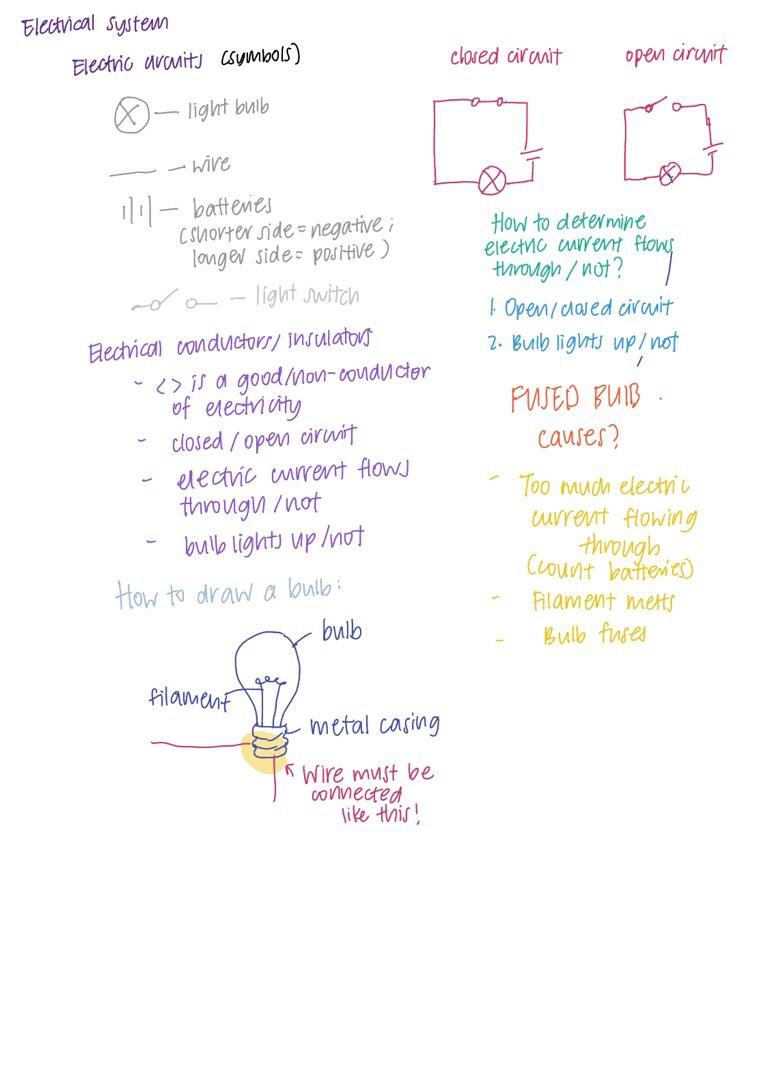 Electrical system
Electric circuits (symbols)
— light bulb
— wire
— batteries
(shorter side = negative;
longer side = positive)
— light switch
Electrical conductors/insulators
- <> is a good/non-conductor
of electricity
- closed/open circuit
- electric current flows
through/not
- bulb lights up/not
How to draw a bulb:
bulb
filament
metal casing
Wire must be
connected
like this!
closed circuit
open circuit
How to determine
electric current flows
through/not?
1. Open/closed circuit
2. Bulb lights up/not
FUSED BULB.
causes?
- Too much electric
current flowing
through
(count batteries)
- Filament melts
- Bulb fuses